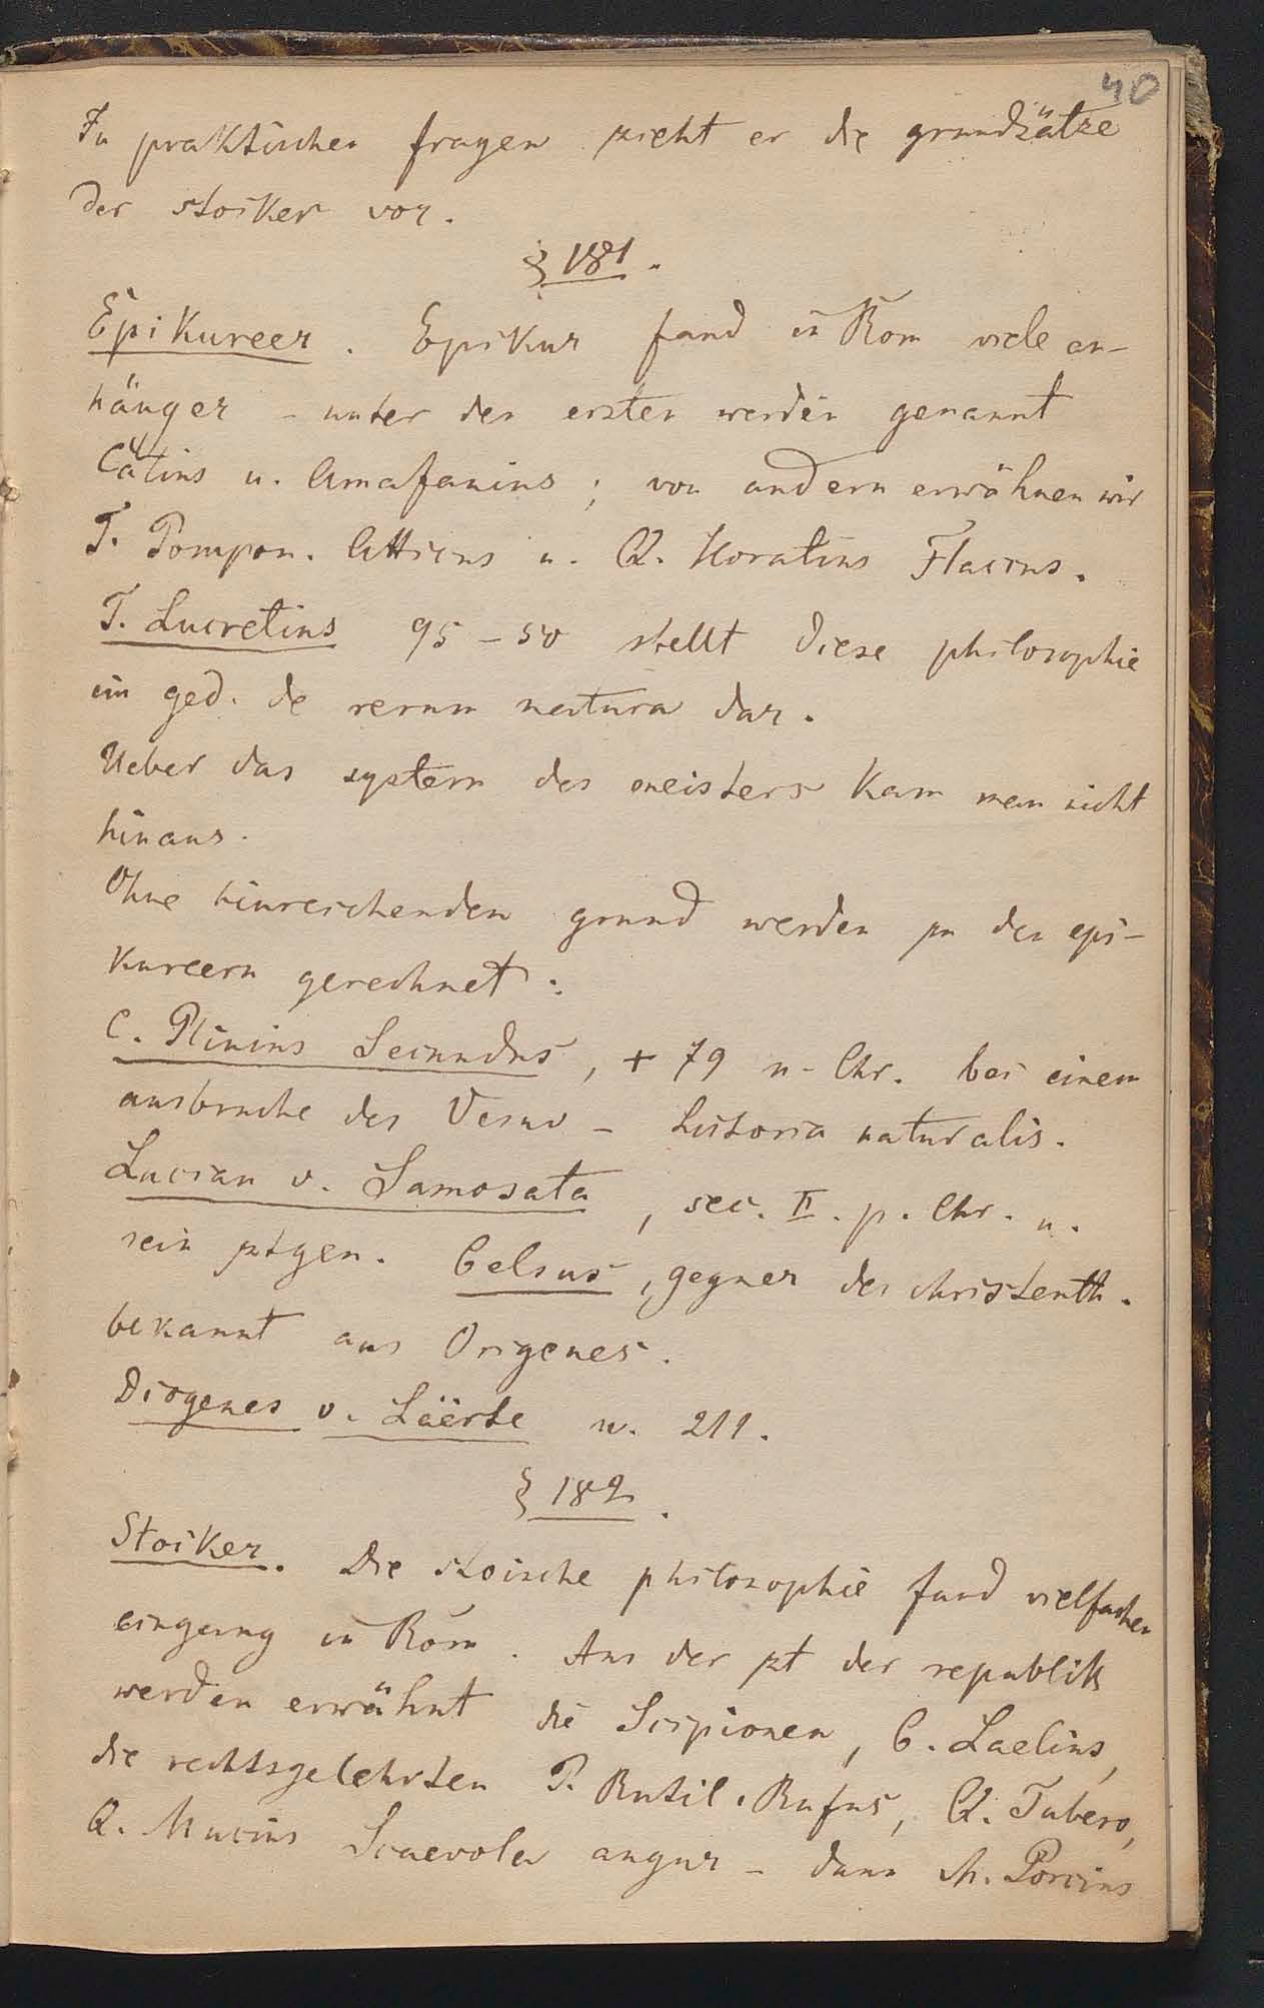 40
In praktischen fragen zieht er die grundsätze
der stoiker vor.
§ 181.
Epikureer. Epikur fand in Rom viele an-
hänger – unter den ersten werden genannt
Cätius u. Amafanius; von andern erwähnen wir
T. Pompon. Atticus u. Q. Horatius Flaccus.
T. Lucretius 95–50 stellt diese philosophie
im ged. de rerum natura dar.
Ueber das system des meisters kam man nicht
hinaus.
Ohne hinreichenden grund werden zu den epi-
kureern gerechnet:
C. Plinius Secundus, + 79 n. Chr. bei einem
ausbruche des Vesuv – historia naturalis.
Lucian v. Samosata, sec. II. p. Chr. u.
sein ztgen. Celsus, gegner des christenth.
bekannt aus Origenes.
Diogenes v. Läërte u. 211.
§ 182.
Stoiker. Die stoische philosophie fand vielfachen
eingang in Rom. Aus der zt der republik
werden erwähnt die Scipionen, C. Laelius,
die rechtsgelehrten P. Rutil. Rufus, Q. Tubero,
Q. Mucius Scaevola augur – dann M. Porcius